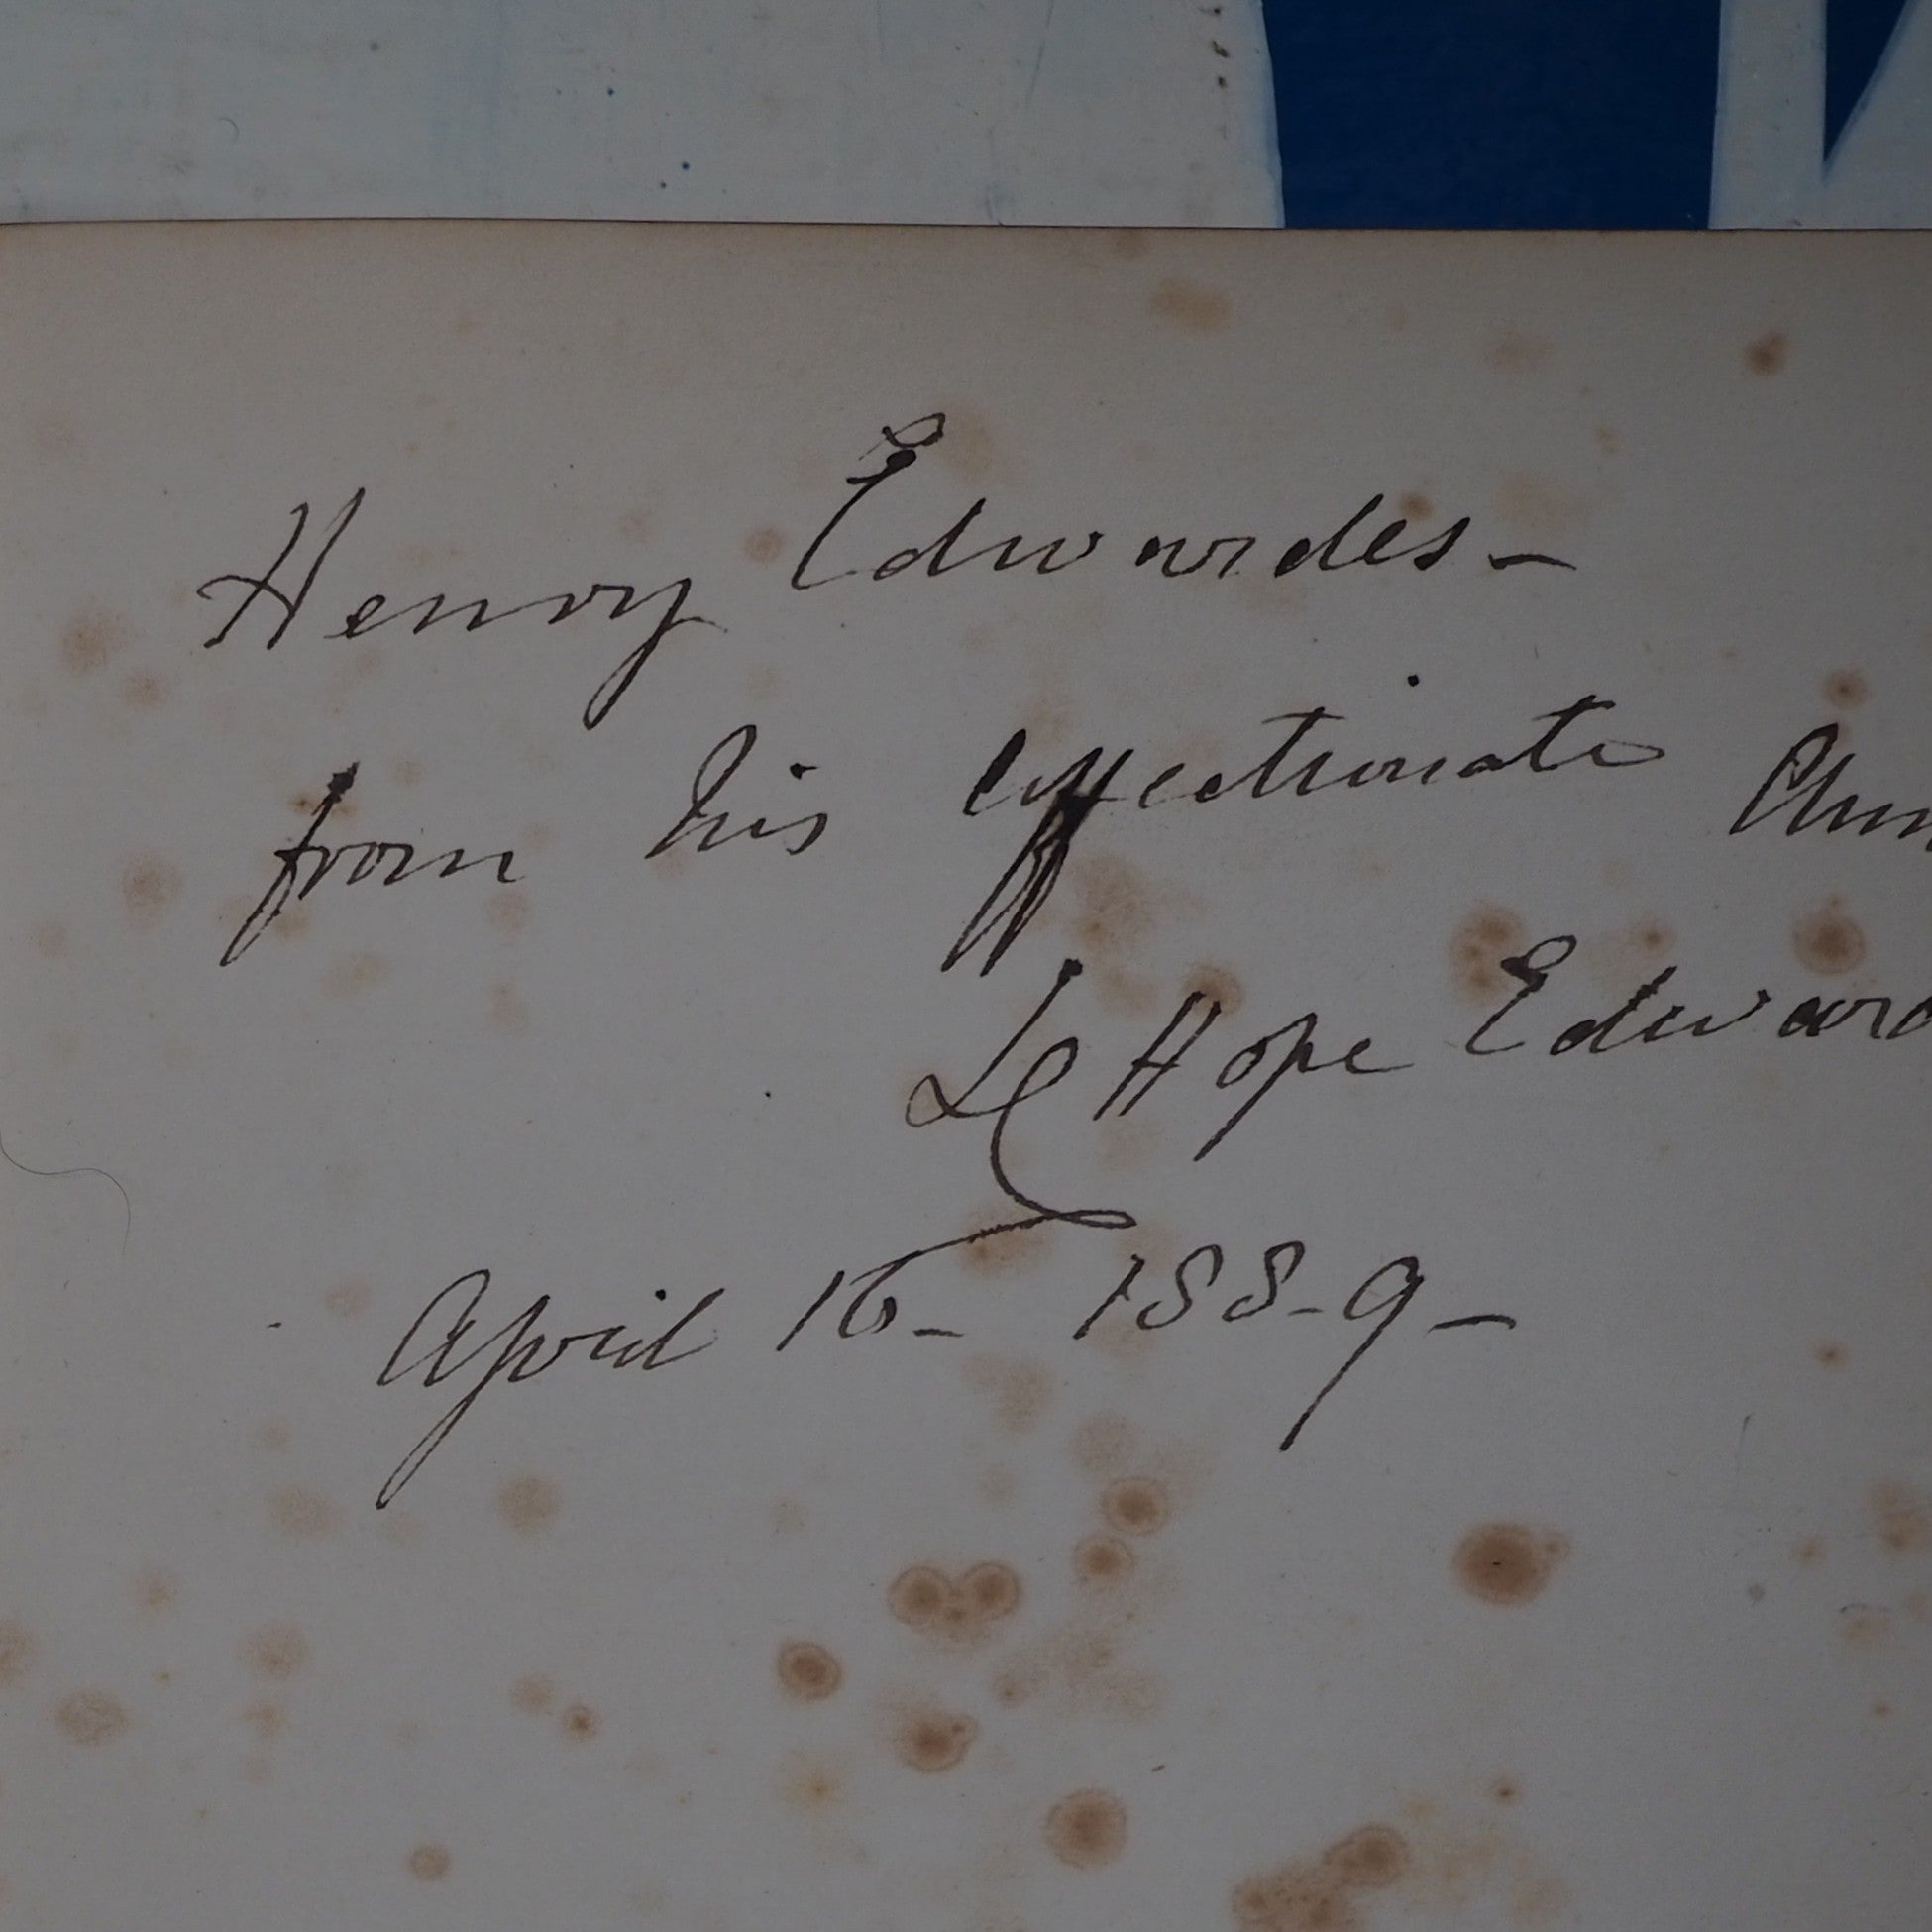 Henry Edwardes-
from his affectionate Aun
L Hope Edward
April 16- 188-9-